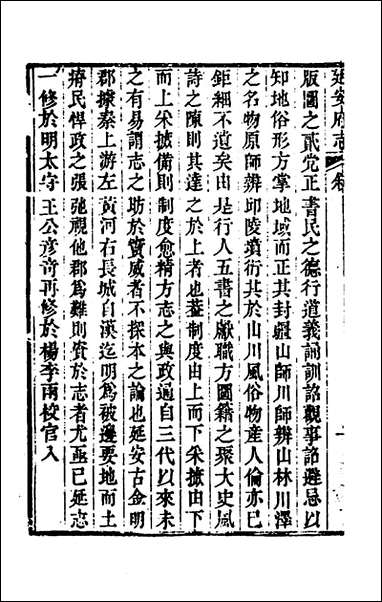 延安府志 卷 一
版圖之貳党正書民之德行道義誦訓詔觀事詔避忌以
知地俗形方掌地域而正其封疆山師川師辨山林川澤
之名物原師辨邱陵墳衍其於山川風俗物產人倫亦已
鉅細不遺矣由是行人五書之獻職方圖籍之聚大史風
詩之陳則其達之於上者也蓋制度由上而下采摭由下
而上采摭備則制度愈精方志之與政通自三代以來未
之有易謂志之昉於寰威者不探本之論也延安古金明
郡據秦上游左黃河右長城自漢迄明爲被邊要地而土
瘠民悍政之張弛視他郡爲難則資於志者尤亟已延志
一修於明太守王公彥奇再修於楊李兩校官入